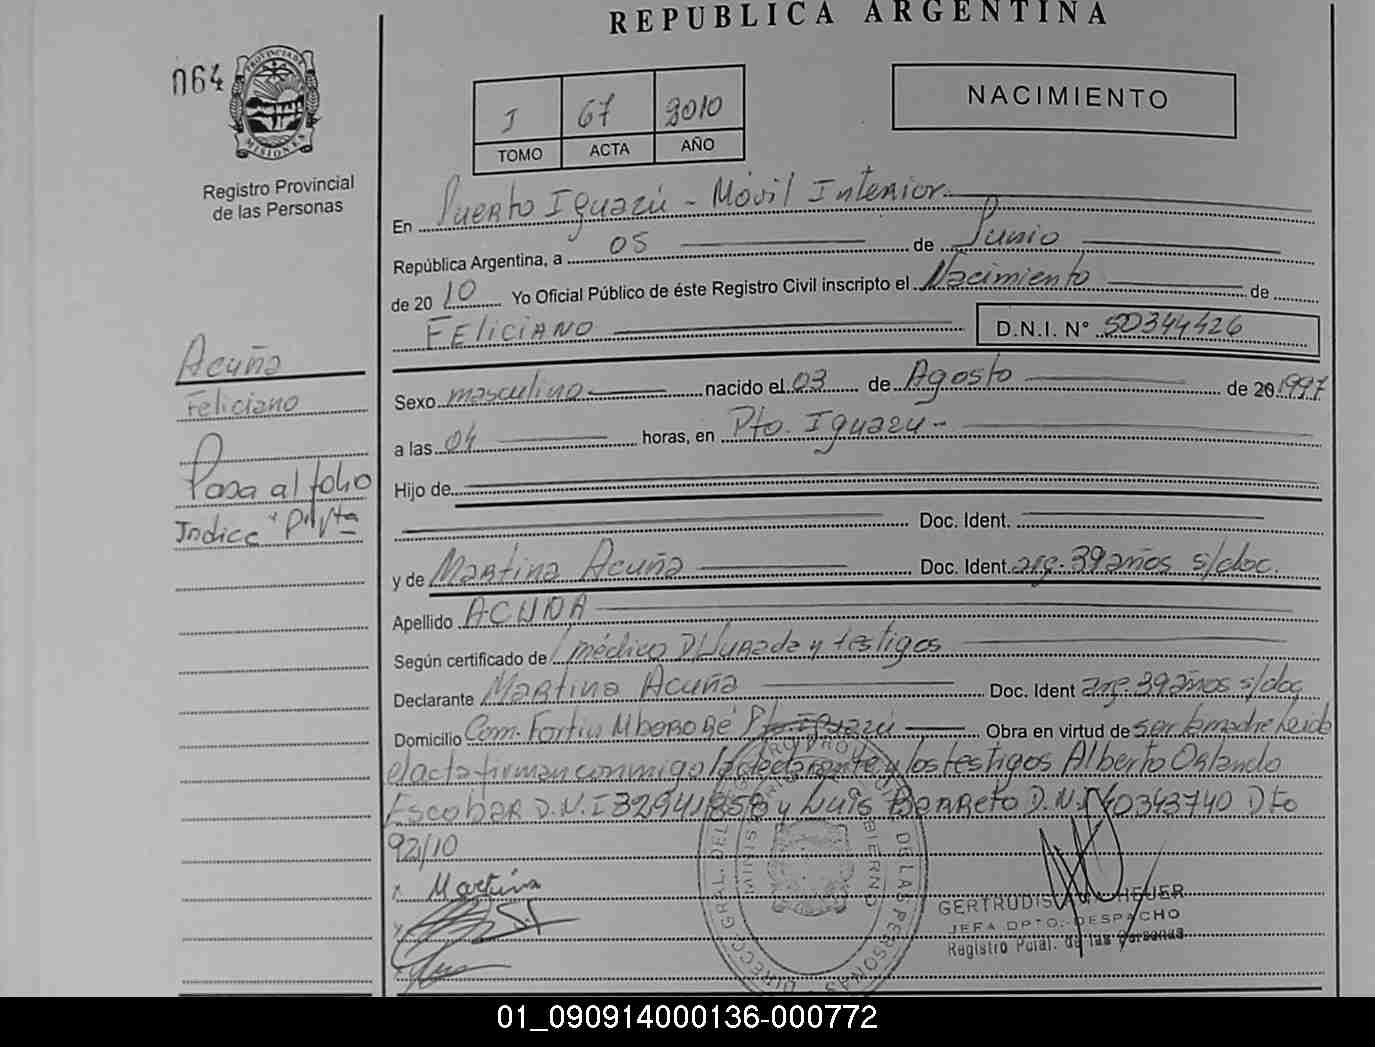 REPUBLICA ARGENTINA
064
PROVINCIA DE
MISIONES
Registro Provincial
de las Personas
I 67 2010
TOMO ACTA AÑO
NACIMIENTO
En Puerto Iguazú - Móvil Interior
República Argentina, a 05 de Junio
de 2010 Yo Oficial Público de éste Registro Civil inscripto el Nacimiento de
FELICIANO D.N.I. N° 50344426
Acuña
Feliciano
Pasa al folio
Indice
Sexo masculino nacido el 03 de Agosto de 20 1997
a las 04 horas, en Pto. Iguazu -
Hijo de
Doc. Ident.
y de Martina Acuña Doc. Ident. arg. 39 años s/doc.
Apellido ACUÑA
Según certificado de médico D/Jurada y testigos
Declarante Martina Acuña Doc. Ident arg. 39 años s/doc
Domicilio Com. Fortin Mbororé Pto Iguazú Obra en virtud de ser la madre Leida
el acta firman conmigo la declarante y los testigos Alberto Orlando
Escobar D.N.I 32941858 y Luis Barreto D.N.I 40343740 Dto
92/10
Martina
GERTRUDIS
JEFA DPTO. DESPACHO
Registro Pcial. de las Personas
01_090914000136-000772